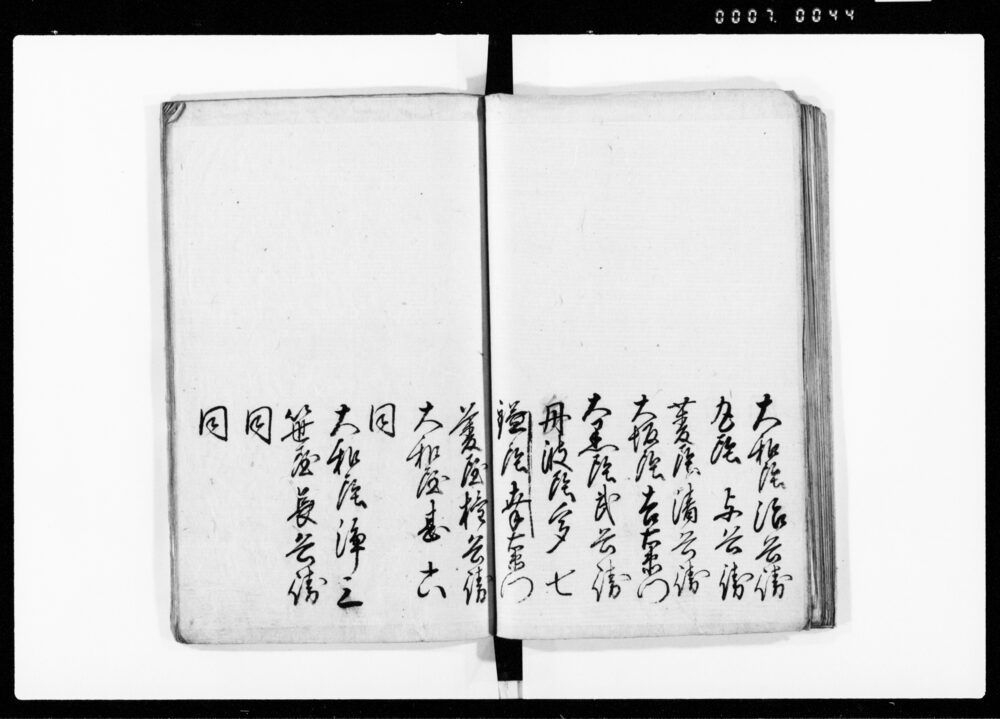 0007 0044
大和屋治兵衛
丸屋 与兵衛
菱屋清兵衛
大坂屋吉右衛門
大黒屋武兵衛
丹波屋 七
鎰屋幸右衛門
菱屋 兵衛
大和屋甚六
同
大和屋 三
笹屋長兵衛
同
同